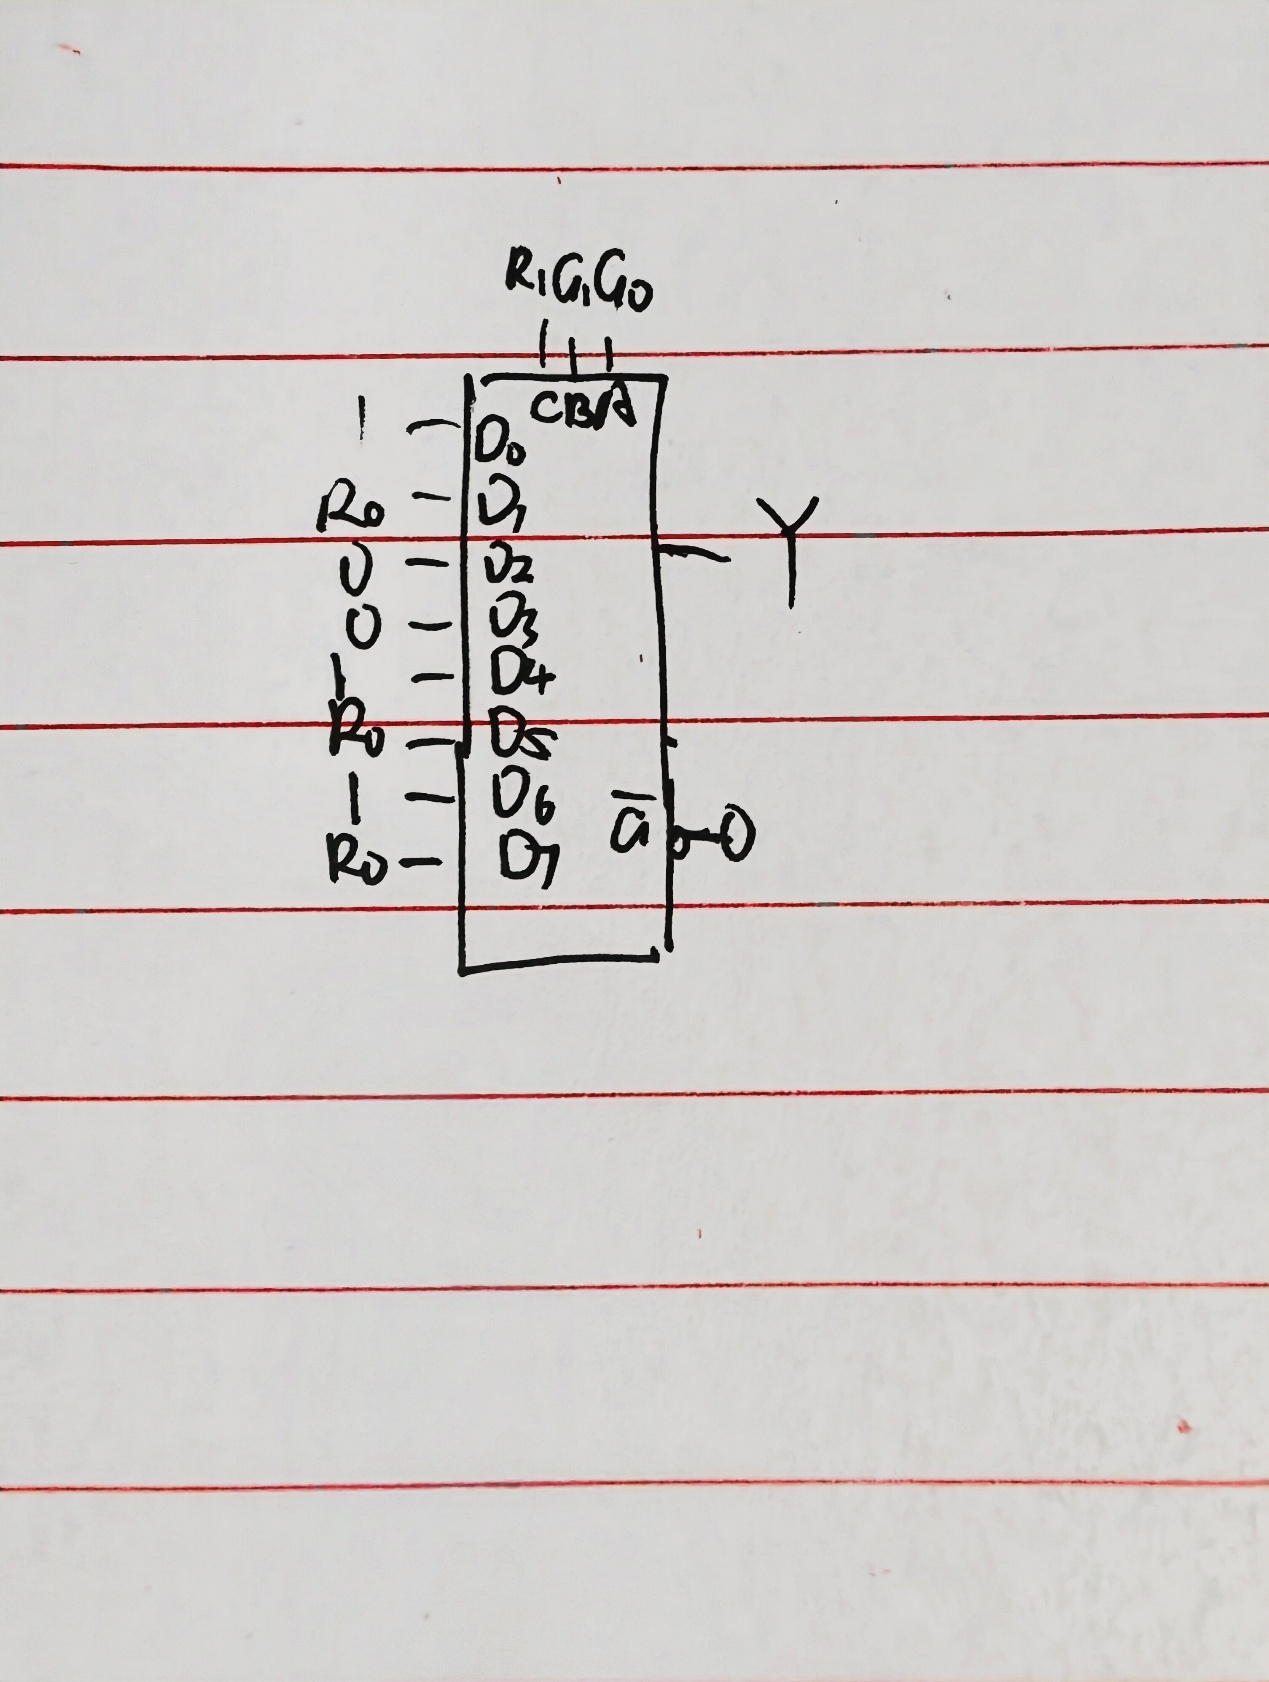 R₁G₁G₀
CBA
1 D₀
R₀ D₁
0 D₂ Y
0 D₃
1 D₄
R₀ D₅
1 D₆
R₀ D₇ G̅ 0